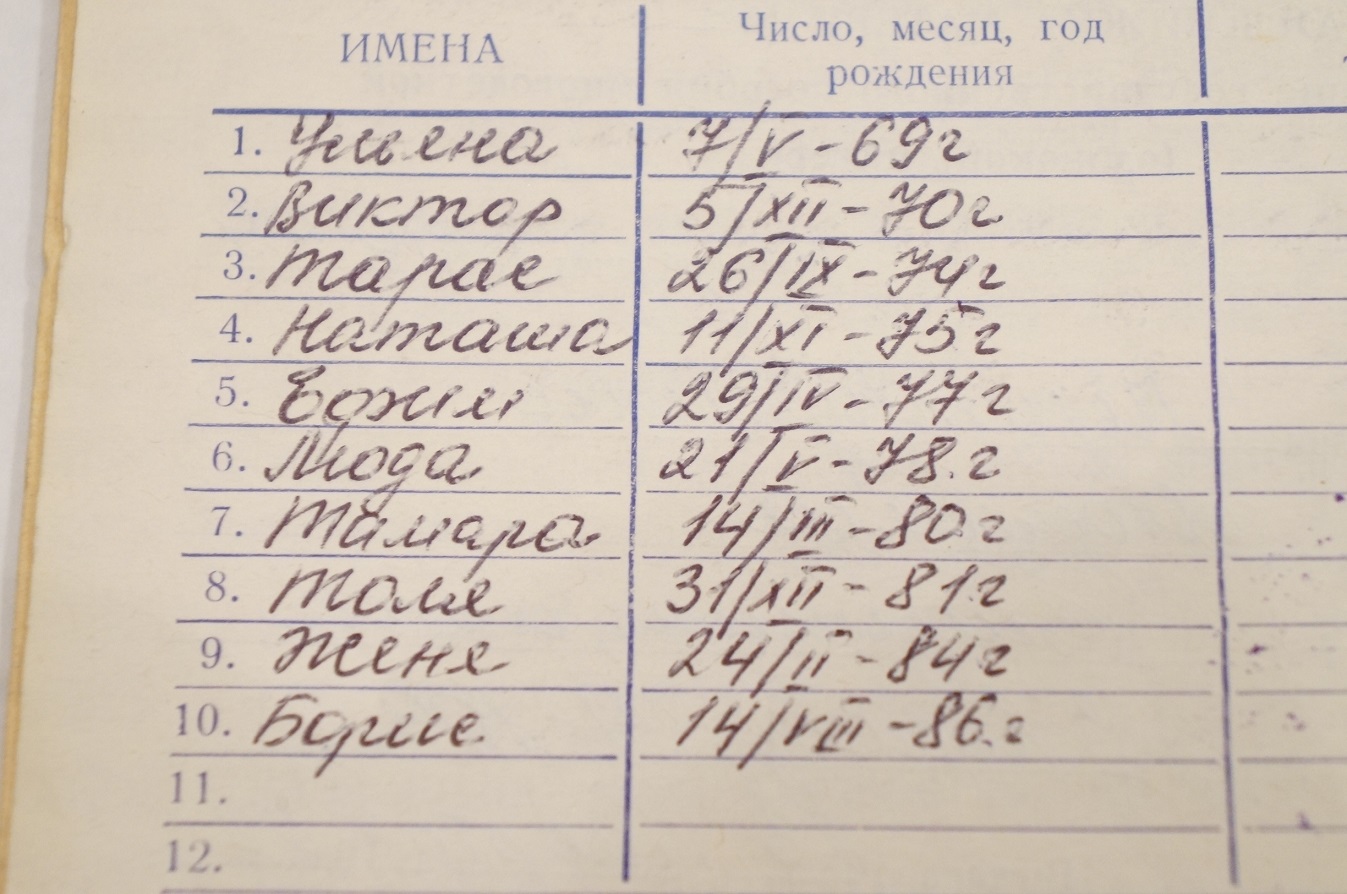 ИМЕНА
Число, месяц, год
рождения
1. Ульяна 7/V - 69г
2. Виктор 5/XII - 70г
3. Тарас 26/IX - 74г
4. Наташа 11/XI - 75г
5. 29/IV - 77г
6. Люда 21/V - 78.г
7. Тамара 14/III - 80г
8. Толя 31/XII - 81г
9. Женя 24/II - 84г
10. Борис 14/VIII - 86.г
11.
12.